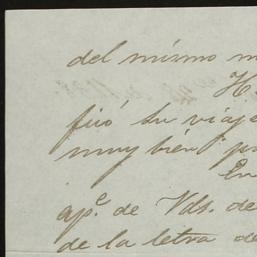 del mismo m
H
fué su viaje
muy bien p
En
ap.e de Vds. de
de la letra de